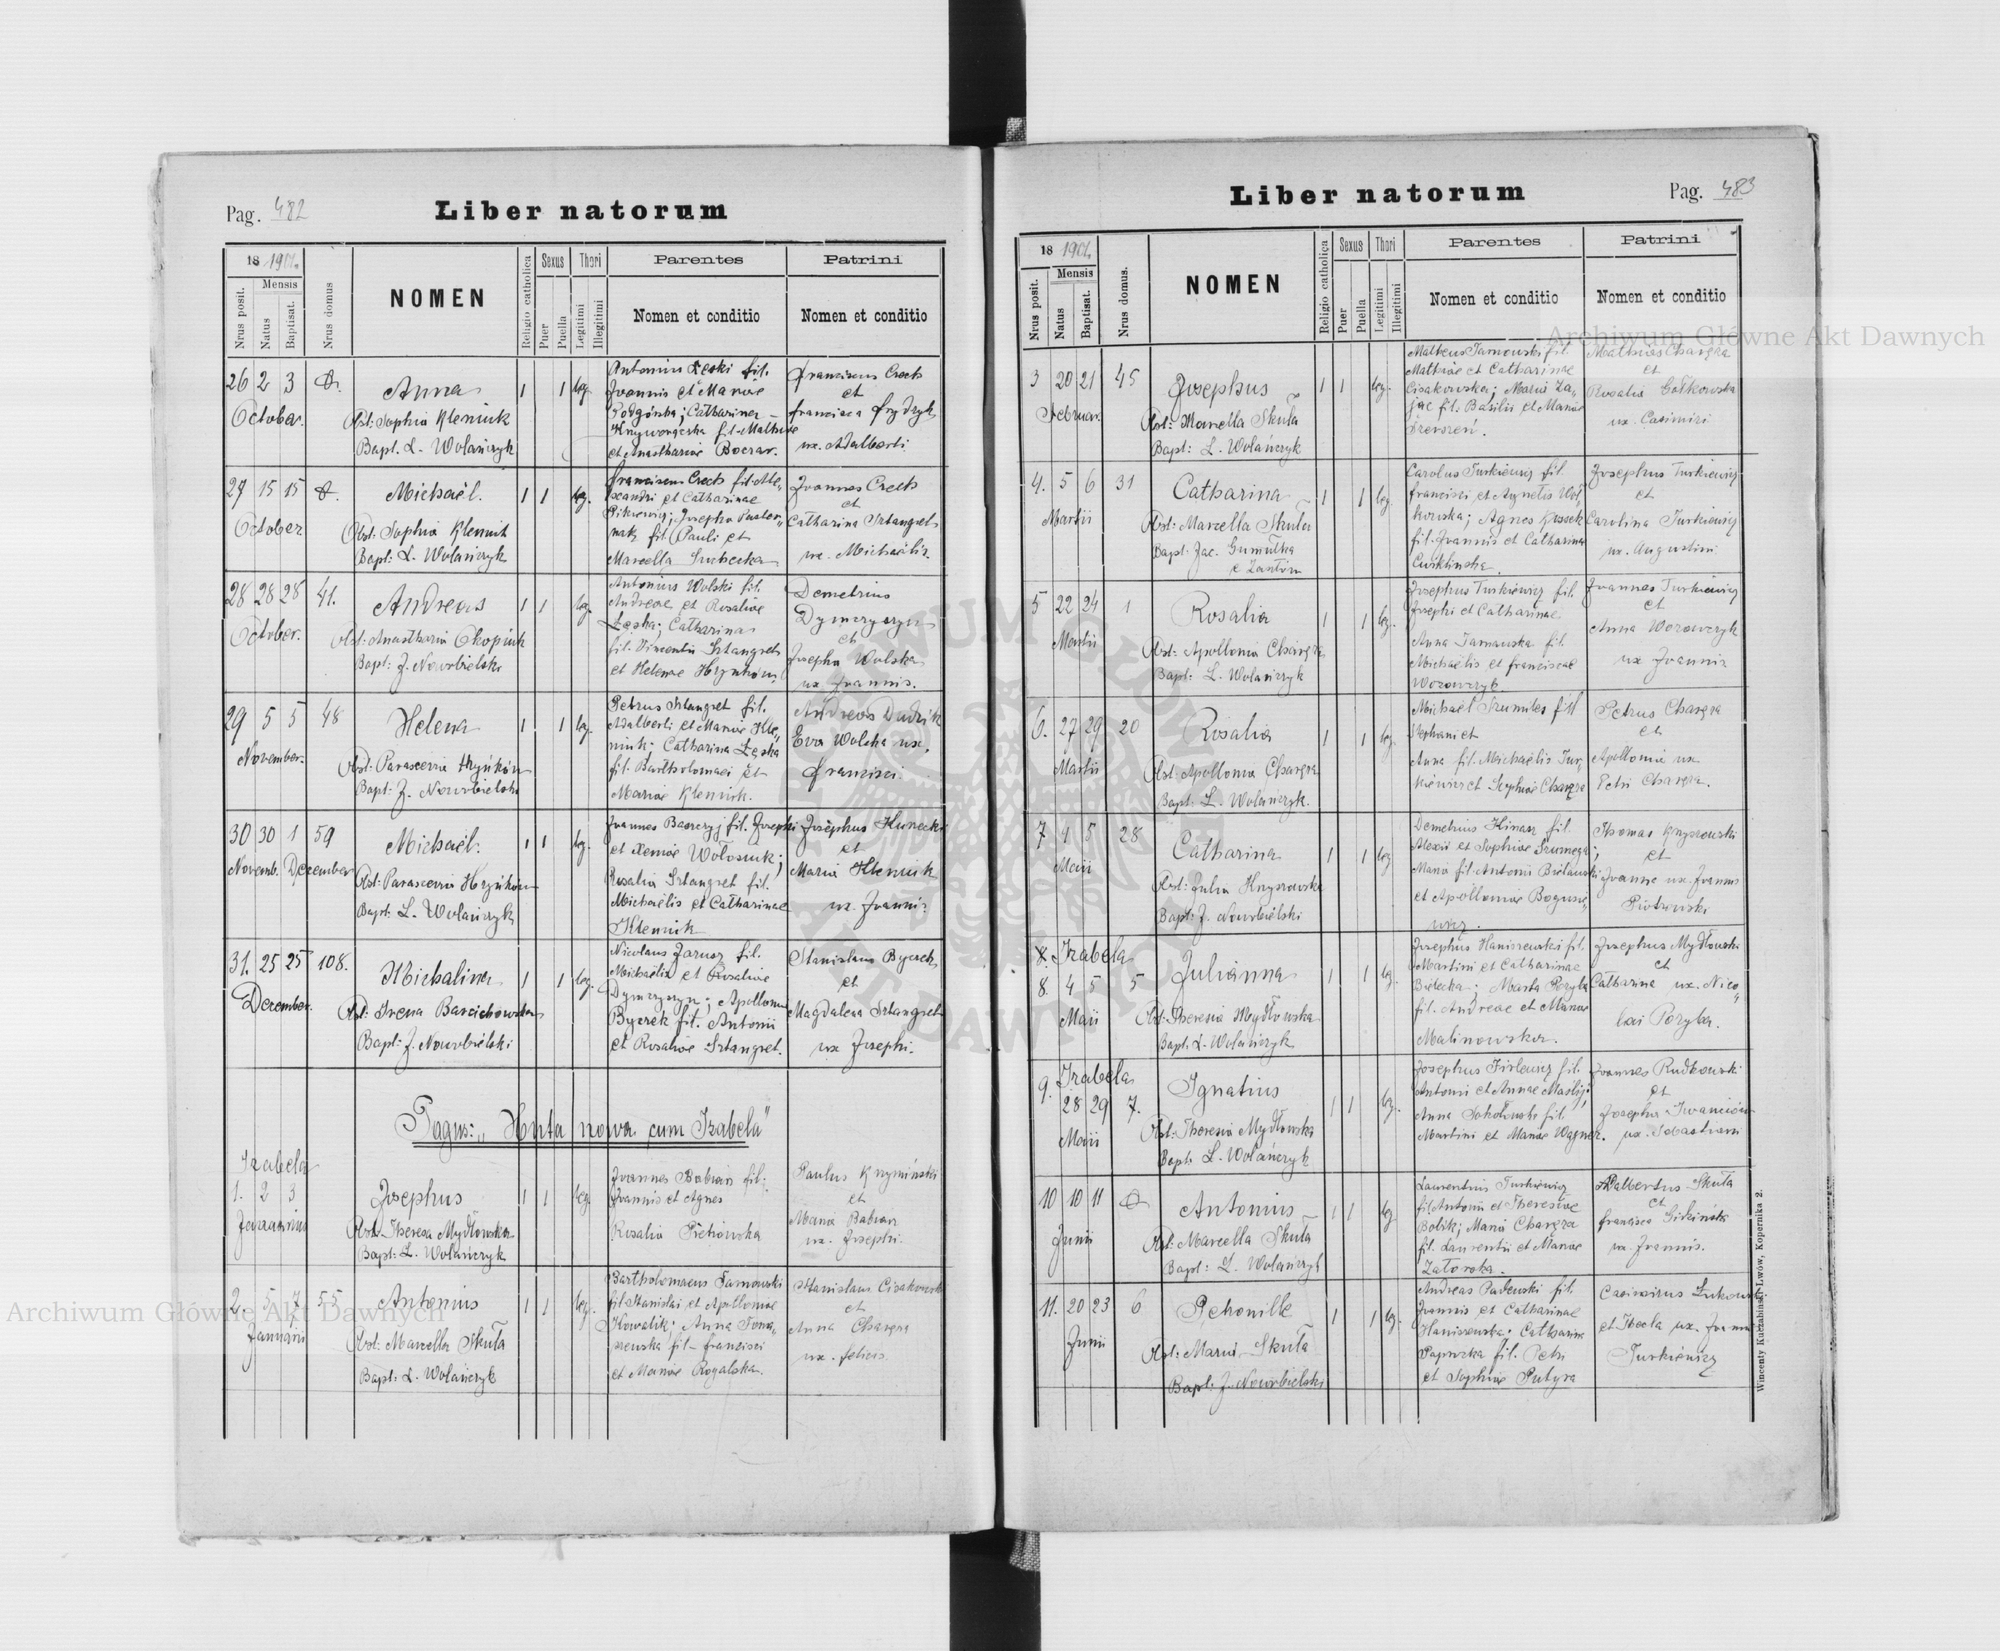 Pag. 482
Liber natorum
18 1901.
Nrus posit.
Mensis
Natus
Baptisat.
Nrus domus
NOMEN
Religio catholica
Sexus
Puer
Puella
Thori
Legitimi
Illegitimi
Parentes
Nomen et conditio
Patrini
Nomen et conditio
26 2 3
October.
Anna
Obst: Sophia Klemiuk
Bapt. L. Wolańczyk
1 1 leg.
Antonius Łęski fil.
Joannis et Mariae
Podgórska; Catharina
fil. Mathiae
et Anastasiae
Franciscus Czech
et
Francisca Frydryk
ux. Adalberti
27 15 15
October
Michaël.
Obst: Sophia Klemiuk
Bapt: L. Wolańczyk
1 1 leg.
Franciscus Czech fil. Ale-
xandri et Catharinae
Josepha Paster-
nak fil. Pauli et
Marcella Suchecka
Joannes Czech
et
Catharina Sztangret
ux. Michaëlis.
28 28 28 41.
October.
Andreas
Bapt: J. Noworbielski
1 1 leg.
Antonius Wolski fil.
Andreae et Rosaliae
Łęska; Catharina
fil. Vincentii Sztangret
et Helenae Hrynków
Demetrius
Dymczyszyn
et
Josepha Wolska
ux. Joannis.
29 5 5 48
November.
Helena
Obst: Parascevia Hryńków
Bapt: J. Noworbielski
1 1 leg.
Petrus Sztangret fil.
Adalberti et Mariae Kle-
miuk; Catharina Łęska
fil. Bartholomaei et
Mariae Klemiuk.
Andreas Dudzik
Eva Wolska ux.
Francisci
30 30 1 59
Novemb. December
Michaël.
Obst: Parascevia Hryńków
Bapt: L. Wolańczyk
1 1 leg.
Joannes fil. Josephi
et Xeniae Wołosiuk;
Rosalia Sztangret fil.
Michaëlis et Catharinae
Klemiuk
Josephus Kunecki
et
Maria Klemiuk
ux. Joannis
31. 25 25 108.
December.
Michalina
Obst: Irena
Bapt: J. Noworbielski
1 1 leg.
Nicolaus Jarosz fil.
Michaëlis et Rosaliae
Dymczyszyn; Apollonia
Byczek fil. Antonii
et Rosaliae Sztangret.
Stanislaus Byczek
et
Magdalena Sztangret
ux Josephi.
Pagus: „Huta nowa cum Izabela"
Izabela
1. 2 3
Januarius
Josephus
Obst. Theresa Mydłowska
Bapt: L. Wolańczyk
1 1 leg.
Joannes Babian fil.
Joannis et Agnes
Rosalia Pietrowska
Paulus Krymiński
et
Maria Babian
ux. Josephi.
2. 5 7 55
Januarii
Antonius
Obst: Marcella Skuła
Bapt: L. Wolańczyk
1 1 leg.
Bartholomaeus Tarnowski
fil. Stanislai et Apolloniae
Kowalik; Anna Toma-
szewska fil. Francisci
et Mariae Rogalska.
Stanislaus Cisakowski
et
Anna Chargra
ux. Felicis
Liber natorum
Pag. 483
18 1901.
Nrus posit.
Mensis
Natus
Baptisat.
Nrus domus.
NOMEN
Religio catholica
Sexus
Puer
Puella
Thori
Legitimi
Illegitimi
Parentes
Nomen et conditio
Patrini
Nomen et conditio
3 20 21 45
Februar.
Josephus
Obst: Marcella Skuła
Bapt: L. Wolańczyk
1 1 leg.
Matheus Tarnowski fil.
Mathiae et Catharinae
Cisakowska; Maria Za-
jac fil. Basilii et Mariae
Szerszeń.
Mathias Chargra
et
Rosalia Gołkowska
ux. Casimiri
4. 5 6 31
Martii
Catharina
Obst: Marcella Skuła
Bapt: Jac. Gumułka
1 1 leg.
Carolus Turkiewicz fil.
Francisci et Agnetis Woł-
kowska; Agnes Kossek
fil. Joannis et Catharina
Josephus Turkiewicz
et
Carolina Turkiewicz
ux. Augustini
5 22 24 1
Martii
Rosalia
Obst: Apollonia Chargra
Bapt: L. Wolańczyk
1 1 leg.
Josephus Turkiewicz fil.
Josephi et Catharinae
Anna Tarnawska fil.
Michaëlis et Franciscae
Worowczyk.
Joannes Turkiewicz
et
Anna Worowczyk
ux Joannis
6. 27 29 20
Martii
Rosalia
Obst: Apollonia Chargra
Bapt: L. Wolańczyk.
1 1 leg.
Michaël Szumiles fil
Stephani et
Anna fil. Michaëlis Tur-
kiewicz et Sophiae Chargra
Petrus Chargra
et
Apollonia ux
Petri Chargra.
7 4 5 28
Maii
Catharina
Obst: Julia Knyszowska
Bapt: J. Noworbielski
1 1 leg
Demetrius Kinasz fil.
Alexii et Sophiae
Maria fil. Antonii Bielawski
et Apolloniae Bogusie-
wicz.
Thomas Knyszewski
et
Joanna ux. Joannis
Piotrowski
8. Izabela
8. 4 5 5
Maii
Julianna
Obst: Theresia Mydłowska
Bapt. L. Wolańczyk
1 1 leg.
Josephus Haniszewski fil.
Martini et Catharinae
Bielecka; Marta Poryba
fil. Andreae et Mariae
Malinowska.
Josephus Mydłowski
et
Catharina ux. Nico-
lai Poryba.
9. Izabela
28 29 7.
Maii
Ignatius
Obst: Theresia Mydłowska
Bapt. L. Wolańczyk
1 1 leg.
Josephus Firlewicz fil.
Antonii et Annae Maslij;
Anna Sokołowska fil.
Martini et Mariae Wagner.
Joannes Rudkowski
et
Josepha Iwanciów
ux. Sebastiani
10 10 11
Junii
Antonius
Obst: Marcella Skuła
Bapt: L. Wolańczyk
1 1 leg
Laurentius Turkiewicz
fil. Antonii et Theresiae
Bolik; Maria Chargra
fil. Laurentii et Mariae
Zatorska.
Adalbertus Skuła
et
Francisca
ux. Joannis.
11. 20 23 6
Junii
Petronille
Obst: Maria Skuła
Bapt: J. Noworbielski
1 1 leg.
Andreas Pawewski fil.
Joannis et Catharinae
Haniszewska; Catharina
Paprzka fil. Petri
et Sophiae Putyra
Casimirus Łukowski
et Thecla ux. Joannis
Turkiewicz
Wincenty Kuczabiński Lwów, Kopernika 2.
Archiwum Główne Akt Dawnych
Archiwum Główne Akt Dawnych
ARCHIWUM GŁÓWNE AKT DAWNYCH